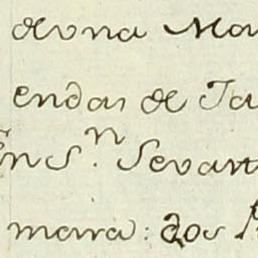 deuna Ma
endas de Ta
en S.n Sevast
mara: dos